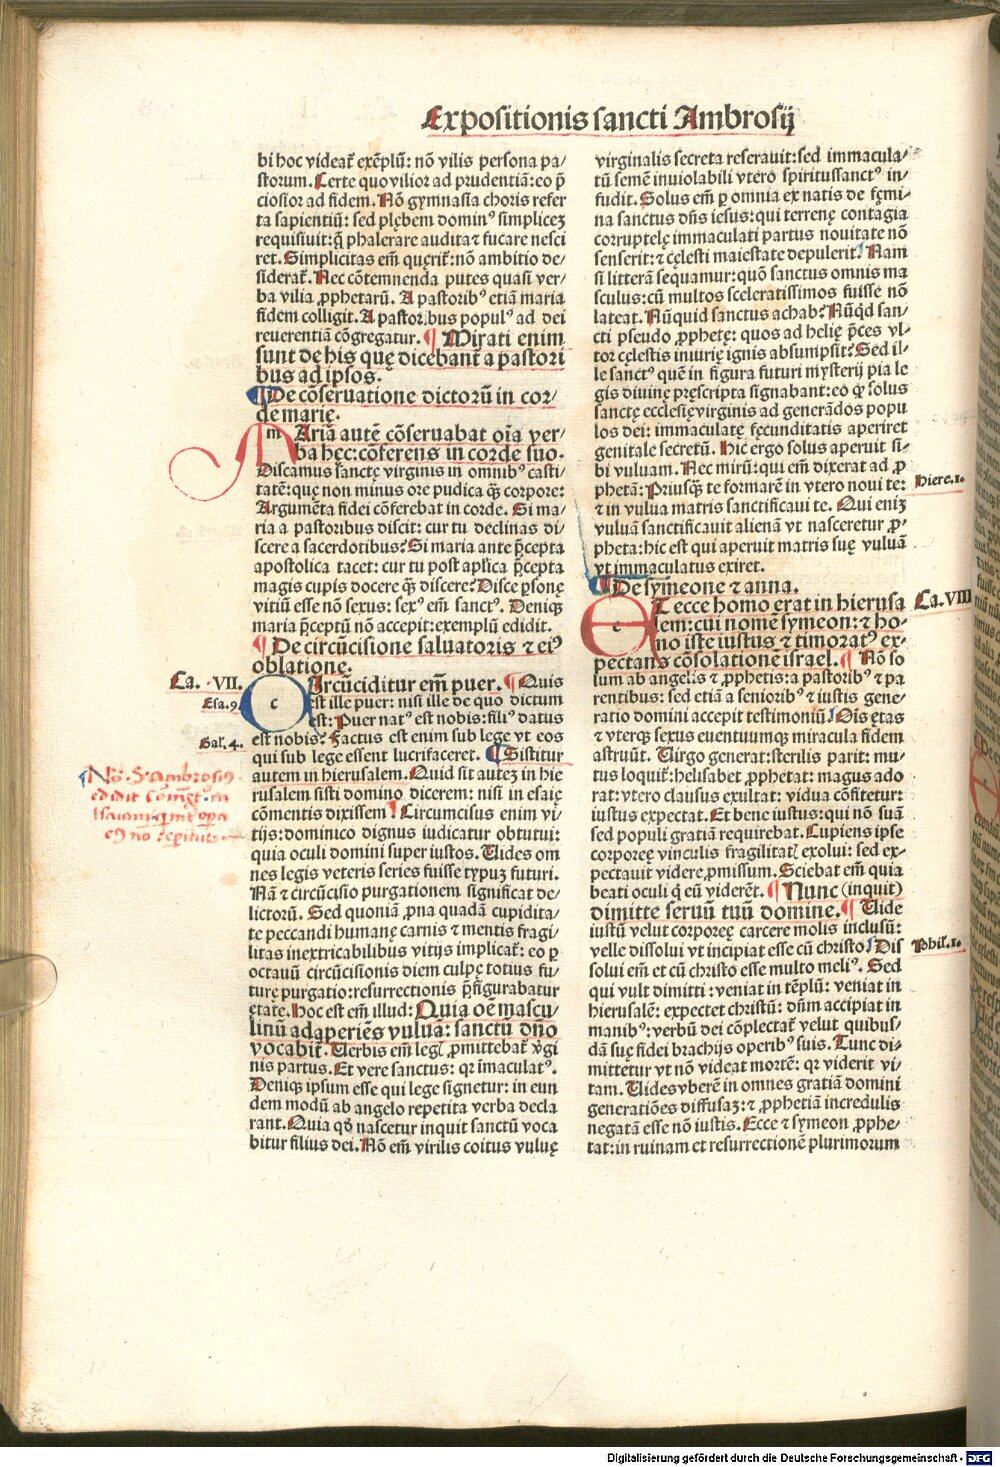 Expositionis sancti Ambrosij
bi hoc videat᷑ exẽplũ: nõ vilis persona pa/
storum. Certe quo vilior ad prudentiã: eo p̃
ciosior ad fidem. Nõ gymnasia choris refer
ta sapientiũ: sed plębem dominꝰ simpliceꝫ
requisiuit: q̃ phalerare audita ⁊ fucare nesci
ret. Simplicitas em̃ quęrit᷑: nõ ambitio de/
siderat᷑. Nec cõtemnenda putes quasi ver/
ba vilia ꝓphetarũ. A pastoribꝰ etiã maria
fidem colligit. A pastoribus populꝰ ad dei
reuerentiã cõgregatur. ¶ Mirati enim
sunt de his quę dicebant᷑ a pastori
bus ad ipsos.
¶ De cõseruatione dictorũ in cor/
de marię.
m Ariã autẽ cõseruabat oĩa ver/
ba hęc: cõferens in corde suo.
Discamus sanctę virginis in omnibꝰ casti/
tatẽ: quę non minus ore pudica q̃ꝫ corpore:
Argumẽta fidei cõferebat in corde. Si ma/
ria a pastoribus discit: cur tu declinas di/
scere a sacerdotibus? Si maria ante p̃cepta
apostolica tacet: cur tu post apl̃ica p̃cepta
magis cupis docere q̃ꝫ discere? Disce ꝑsonę
vitiũ esse nõ sexus: sexꝰ em̃ sanctꝰ. Deniqꝫ
maria p̃ceptũ nõ accepit: exemplũ edidit.
¶ De circũcisione saluatoris ⁊ eiꝰ
oblatione.
Ca. VII.
c Ircũciditur em̃ puer. ¶ Quis
Esa.9.
est ille puer: nisi ille de quo dictum
est: Puer natꝰ est nobis: filiꝰ datus
Gal̃. 4.
est nobis? Factus est enim sub lege vt eos
qui sub lege essent lucrifaceret. ¶ Sistitur
autem in hierusalem. Quid sit auteꝫ in hie
rusalem sisti domino dicerem: nisi in esaię
cõmentis dixissem. Circumcisus enim vi/
tijs: dominico dignus iudicatur obtutui:
quia oculi domini super iustos. Uides om
nes legis veteris series fuisse typuꝫ futuri.
Nã ⁊ circũcisio purgationem significat de/
lictorũ. Sed quoniã ꝓna quadã cupidita/
te peccandi humanę carnis ⁊ mentis fragi/
litas inextricabilibus vitijs implicat᷑: eo ꝑ
octauũ circũcisionis diem culpę totius fu/
turę purgatio: resurrectionis p̃figurabatur
ętate. Hoc est em̃ illud: Quia oẽ mascu/
linũ adaperiẽs vuluã: sanctũ dño
vocabit᷑. Uerbis em̃ legꝭ ꝓmittebat᷑ vĩgi
nis partus. Et vere sanctus: qꝛ ĩmaculatꝰ.
Deniqꝫ ipsum esse qui lege signetur: in eun
dem modũ ab angelo repetita verba decla
rant. Quia qd̃ nascetur inquit sanctũ voca
bitur filius dei. Nõ em̃ virilis coitus vuluę
virginalis secreta reserauit: sed immacula/
tũ semẽ inuiolabili vtero spiritussanctꝰ in/
fudit. Solus em̃ ꝑ omnia ex natis de fęmi/
na sanctus dñs iesus: qui terrenę contagia
corruptelę immaculati partus nouitate nõ
senserit: ⁊ cęlesti maiestate depulerit. Nam
si litterã sequamur: quõ sanctus omnis ma
sculus: cũ multos sceleratissimos fuisse nõ
lateat. Nũquid sanctus achab? Nũq̇d san/
cti pseudo ꝓphetę: quos ad helię p̃ces vl/
tor cęlestis iniurię ignis absumpsit? Sed il/
le sanctꝰ quẽ in figura futuri mysterij pia le
gis diuinę pręscripta signabant: eo ꝙ solus
sanctę ecclesię virginis ad generãdos popu
los dei: immaculatę fęcunditatis aperiret
genitale secretũ. Hic ergo solus aperuit si/
bi vuluam. Nec mirũ: qui em̃ dixerat ad ꝓ
phetã: Priusq̃ꝫ te formarẽ in vtero noui te:
Hiere.1.
⁊ in vulua matris sanctificaui te. Qui eniꝫ
vuluã sanctificauit alienã vt nasceretur ꝓ/
pheta: hic est qui aperuit matris suę vuluã
vt immaculatus exiret.
¶ De symeone ⁊ anna.
e T ecce homo erat in hierusa
Ca. VIII
lem: cui nomẽ symeon: ⁊ ho/
mo iste iustus ⁊ timoratꝰ ex/
pectans cõsolationẽ israel. ¶ Nõ so
lum ab angelis ⁊ ꝓphetis: a pastoribꝰ ⁊ pa
rentibus: sed etiã a senioribꝰ ⁊ iustis gene/
ratio domini accepit testimoniũ. Oĩs ętas
⁊ vterqꝫ sexus euentuumqꝫ miracula fidem
astruũt. Uirgo generat: sterilis parit: mu/
tus loquit᷑: helisabet ꝓphetat: magus ado
rat: vtero clausus exultat: vidua cõfitetur:
iustus expectat. Et bene iustus: qui nõ suã
sed populi gratiã requirebat. Cupiens ipse
corporeę vinculis fragilitatꝭ exolui: sed ex/
pectauit videre ꝓmissum. Sciebat em̃ quia
beati oculi q̇ eũ viderẽt. ¶ Nunc (inquit)
dimitte seruũ tuũ domine. ¶ Uide
iustũ velut corporeę carcere molis inclusũ:
velle dissolui vt incipiat esse cũ christo. Dis
Phil̃.1.
solui em̃ et cũ christo esse multo meliꝰ. Sed
qui vult dimitti: veniat in tẽplũ: veniat in
hierusalẽ: expectet christũ: dñm accipiat in
manibꝰ: verbũ dei cõplectat᷑ velut quibus/
dã suę fidei brachijs operibꝰ suis. Tunc di/
mittetur vt nõ videat mortẽ: qꝛ viderit vi/
tam. Uides vberẽ in omnes gratiã domini
generatiões diffusaꝫ: ⁊ ꝓphetiã incredulis
negatã esse nõ iustis. Ecce ⁊ symeon ꝓphe/
tat: in ruinam et resurrectionẽ plurimorum
Digitalisierung gefördert durch die Deutsche Forschungsgemeinschaft - DFG